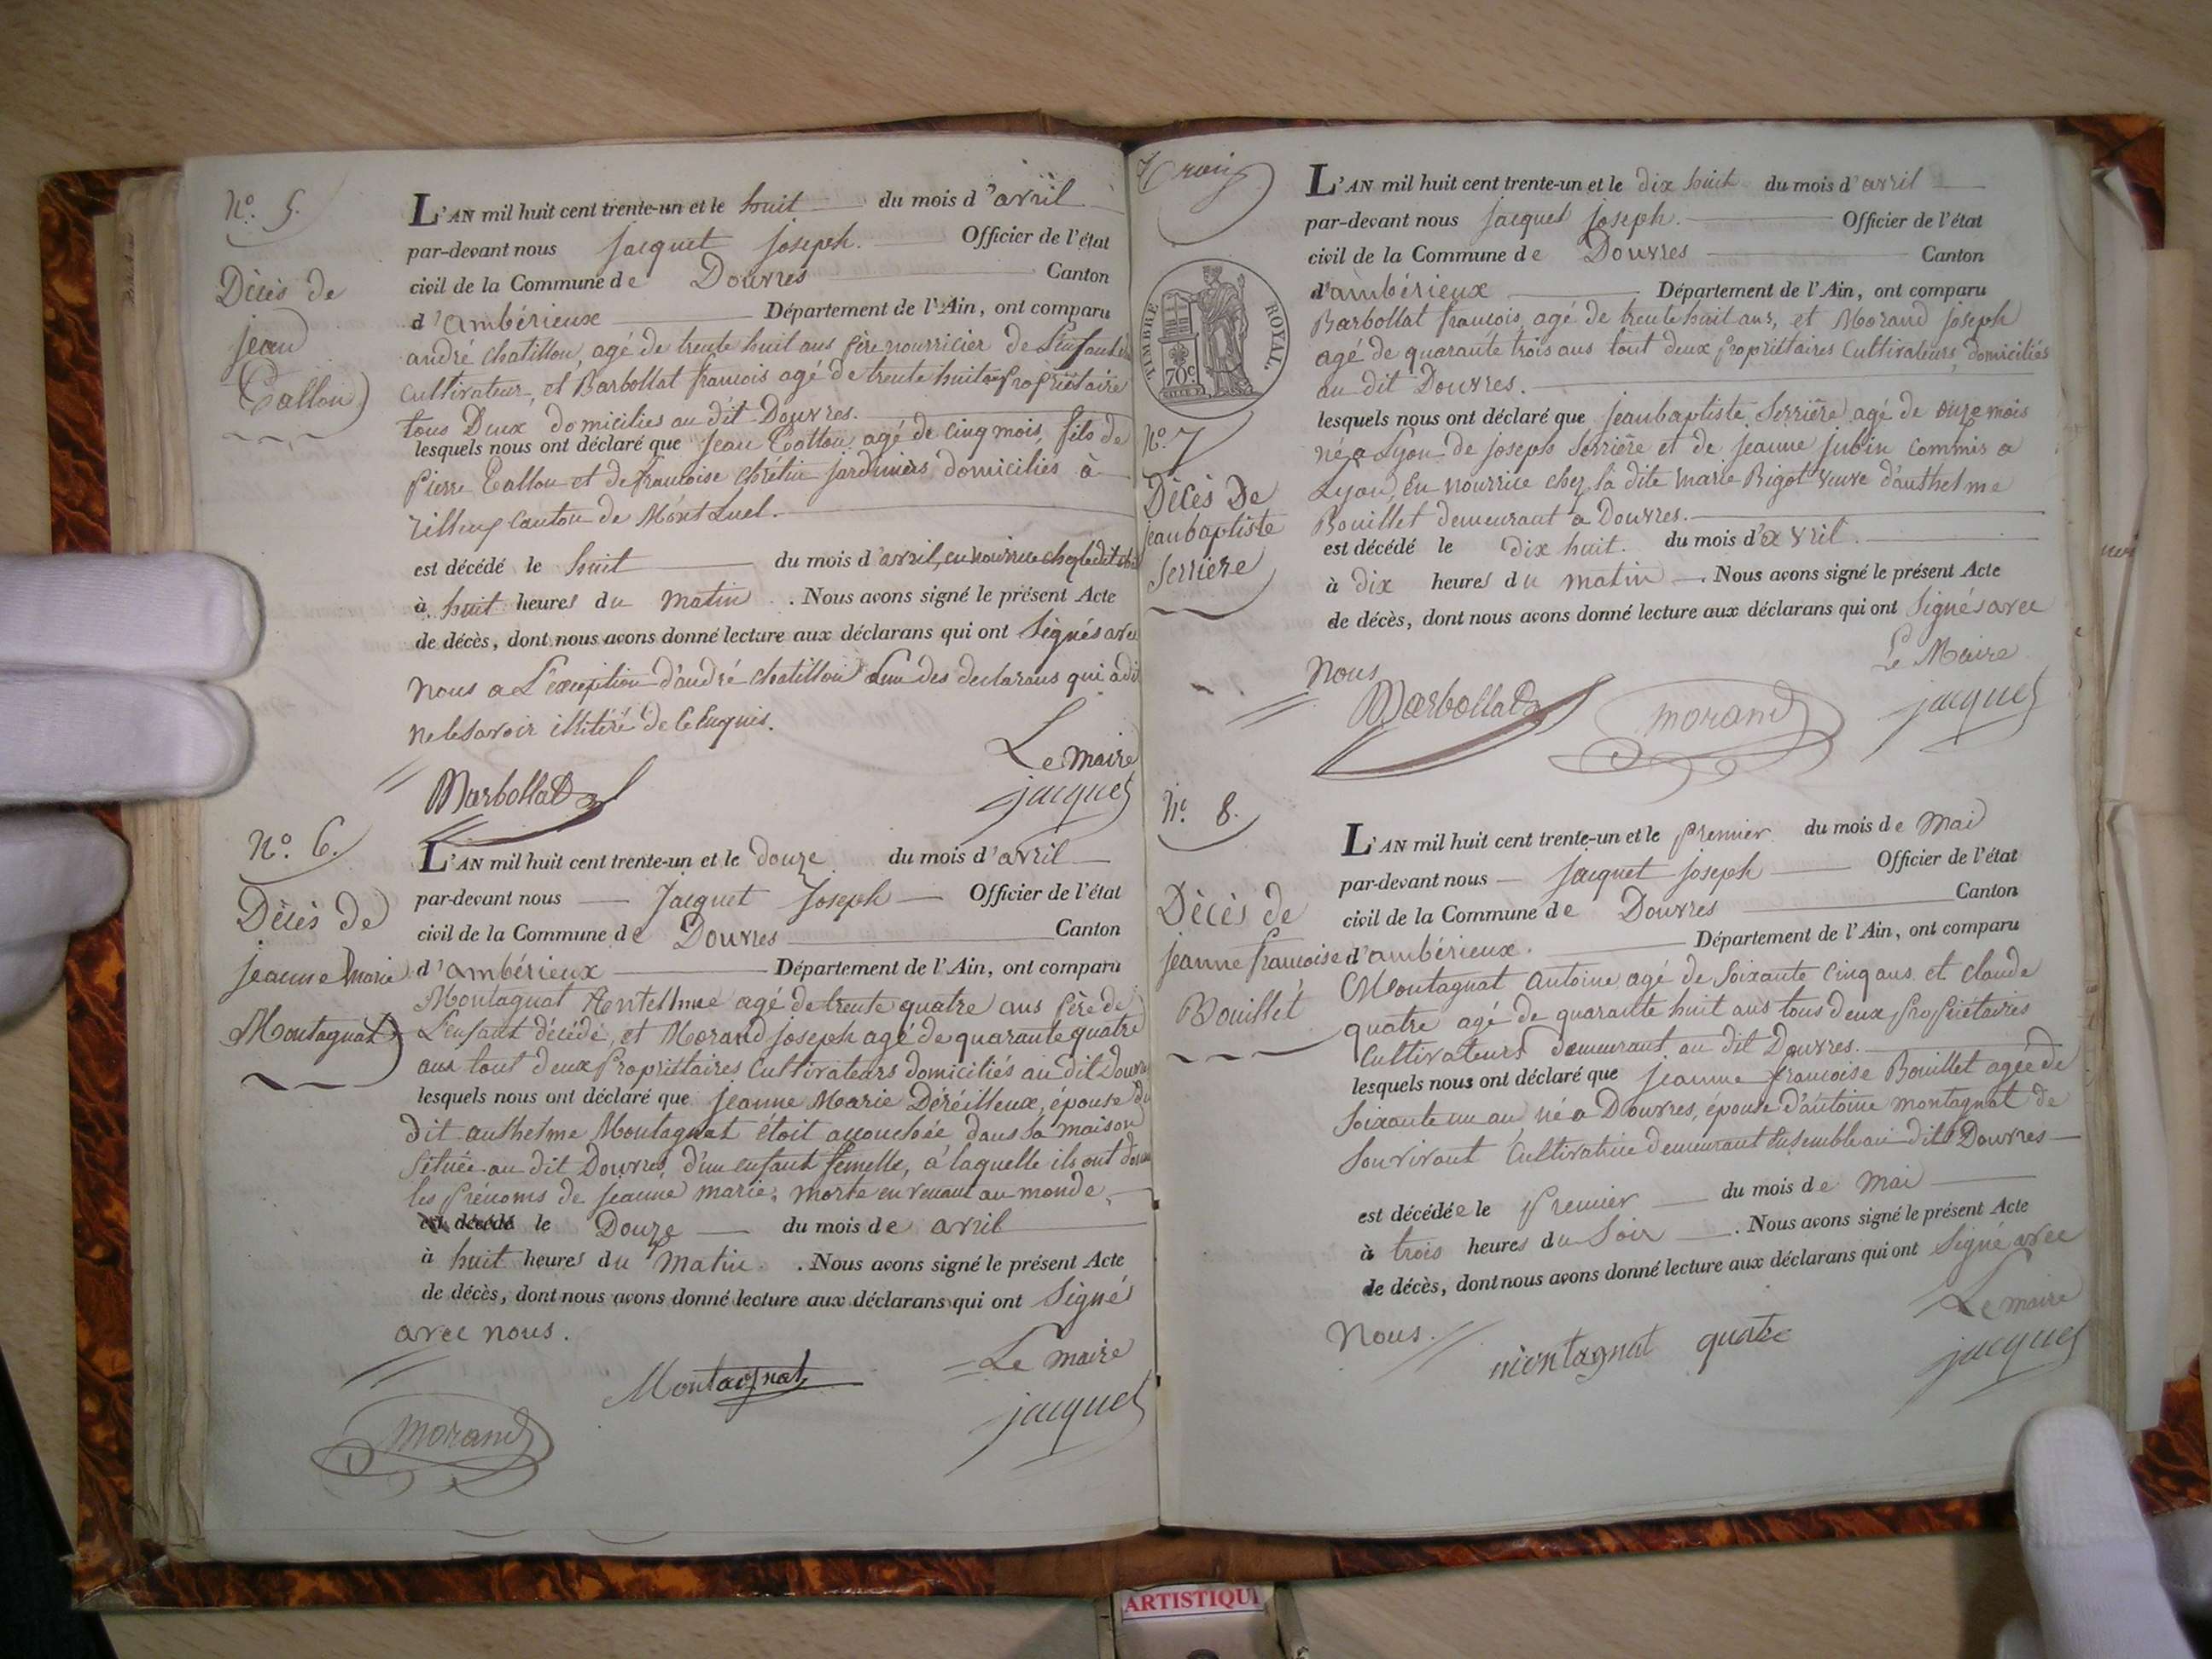 N.º 5.
Décès de
jean
Tallon
L'AN mil huit cent trente-un et le huit du mois d'avril
par-devant nous Jacquet Joseph. Officier de l'état
civil de la Commune de Douvres Canton
d'Ambérieux Département de l'Ain, ont comparu
andré Chatillon, agé de trente huit ans père nourricier de L'enfant
Cultivateur, et Barbollat francois agé de trente huit ans propriétaire
tous Deux domiciliés au dit Douvres.
lesquels nous ont déclaré que Jean Tallon, agé de cinq mois, fils de
Pierre Tallon et de francoise chrétin jardiniers domiciliés à
rillieux Canton de Mont Luel.
est décédé le huit du mois d'avril, en nourrice chez ledit
à huit heures du Matin . Nous avons signé le présent Acte
de décès, dont nous avons donné lecture aux déclarans qui ont Signés avec
Nous a L'exception d'andré chatillon L'un des declarans qui a dit
ne le Savoir illitéré de ce Enquis.
Le maire
Barbollat
jacquet
N.º 6.
Décès de
jeanne Marie
Montagnat
L'AN mil huit cent trente-un et le douze du mois d'avril
par-devant nous Jacquet Joseph Officier de l'état
civil de la Commune de Douvres Canton
d'Ambérieux Département de l'Ain, ont comparu
Montagnat Antellme agé de trente quatre ans père de
L'enfant décédé, et Morand joseph agé de quarante quatre
ans tout deux Propriétaires Cultivateurs domiciliés au dit Douvres
lesquels nous ont déclaré que Jeanne Marie Déréilleux, épouse du
dit anthelme Montagnat étoit accouchée dans sa maison
Située au dit Douvres, d'un enfant femelle, à laquelle ils ont donné
les Prénoms de Jeanne marie, morte en venant au monde,
est décédé le Douze du mois de avril
à huit heures du Matin . Nous avons signé le présent Acte
de décès, dont nous avons donné lecture aux déclarans qui ont Signés
avec nous.
Le maire
Montagnat
morand
jacquet
Trois
TIMBRE ROYAL
70c
L'AN mil huit cent trente-un et le dix huit du mois d'avril
par-devant nous Jacquet Joseph. Officier de l'état
civil de la Commune de Douvres Canton
d'ambérieux Département de l'Ain, ont comparu
Barbollat francois, agé de trente huit ans, et Morand joseph
agé de quarante trois ans tout deux propriétaires Cultivateurs, domiciliés
au dit Douvres.
N.º 7
Décès De
jeanbaptiste
Serrière
lesquels nous ont déclaré que jeanbaptiste Serrière agé de onze mois
né a Lyon de joseph Serrière et de jeanne jubin commis a
Lyon, En nourrice chez la dite marie Rigot Veuve d'anthelme
Bouillet demeurant a Douvres.
est décédé le dix huit. du mois d'avril.
à dix heures du matin . Nous avons signé le présent Acte
de décès, dont nous avons donné lecture aux déclarans qui ont Signés avec
Nous
Le Maire
Barbollat
morand
jacquet
N.º 8.
Décès de
jeanne francoise
Bouillet
L'AN mil huit cent trente-un et le premier du mois de Mai
par-devant nous Jacquet joseph Officier de l'état
civil de la Commune de Douvres Canton
d'ambérieux. Département de l'Ain, ont comparu
Montagnat antoine, agé de Soixante Cinq ans et claude
quatre agé de quarante huit ans tous deux propriétaires
Cultivateurs demeurant au dit Douvres.
lesquels nous ont déclaré que jeanne francoise Bouillet agée de
Soixante un an, né a Douvres, épouse d'antoine montagnat de
Sourivant Cultivatrice demeurant Ensemble au dit Douvres
est décédée le Premier du mois de Mai
à trois heures du Soir . Nous avons signé le présent Acte
de décès, dont nous avons donné lecture aux déclarans qui ont Signé avec
Nous.
Le maire
montagnat
quatre
jacquet
ARTISTIQU